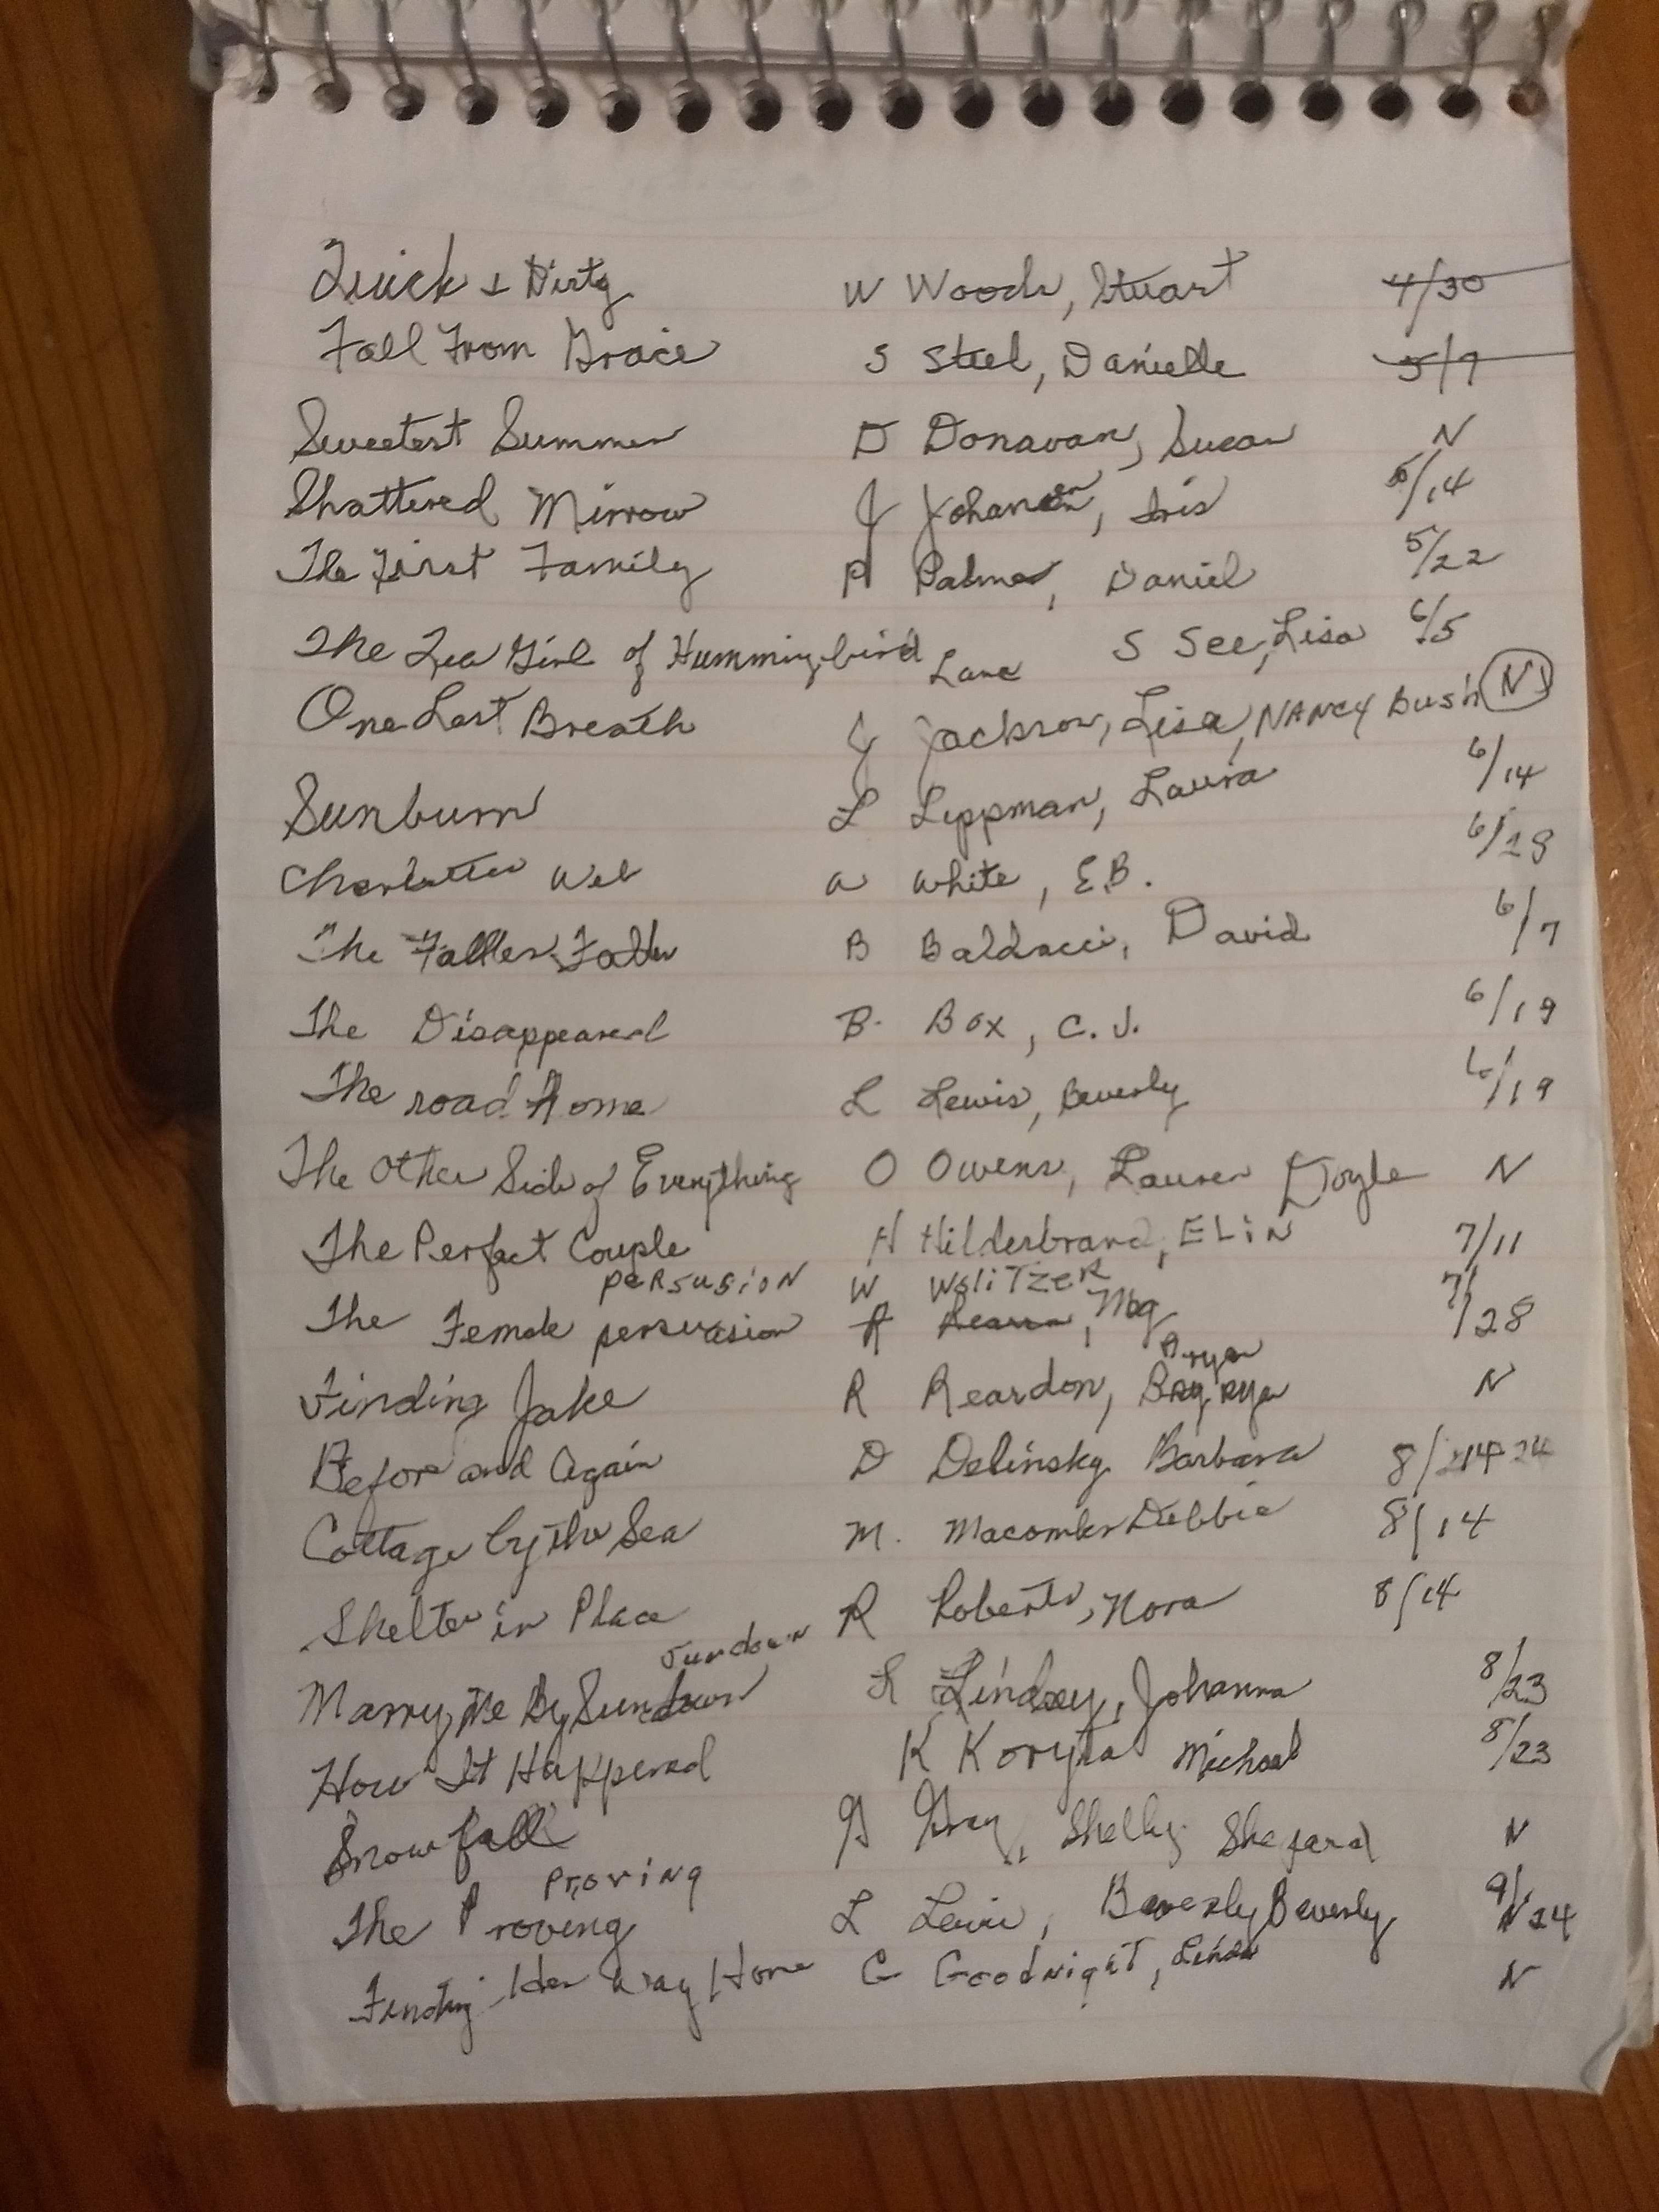 Quick & Dirty W Woods, Stuart 4/30
Fall From Grace S Steel, Danielle 5/9
Sweetest Summer D Donavan, Susan N
Shattered Mirrow J Johansen, Iris 5/14
The First Family P Palmer, Daniel 5/22
The Tea Girl of Hummingbird Lane S See, Lisa 6/5
One Last Breath J Jackson, Lisa, NANCY Bush N
Sunburn L Lippman, Laura 6/14
Charlottes Web W White, E.B. 6/28
The Fallen B Baldacci, David 6/7
The Disappeared B. Box, C.J. 6/19
The road Home L Lewis, Beverly 6/19
The Other Side of Everything O Owens, Lauren Doyle N
The Perfect Couple H Hilderbrand, ELiN 7/11
peRsusioN W WoliTzeR
The Female persuasion R Meg 7/28
Finding Jake R Reardon, Bryan N
Before and Again D Delinsky Barbara 8/24
Cottage by the Sea M. Macomber Debbie 8/14
Shelter in Place R Roberts, Nora 8/14
sundown
Marry Me By Sundown L Lindsey, Johanna 8/23
How It Happened K Koryta Michael 8/23
Snowfall G Gray, Shelly Shepard N
Proving
The Proving L Lewis, Beverly Beverly 9/24
Finding Her Way Home G Goodnight, Linda N